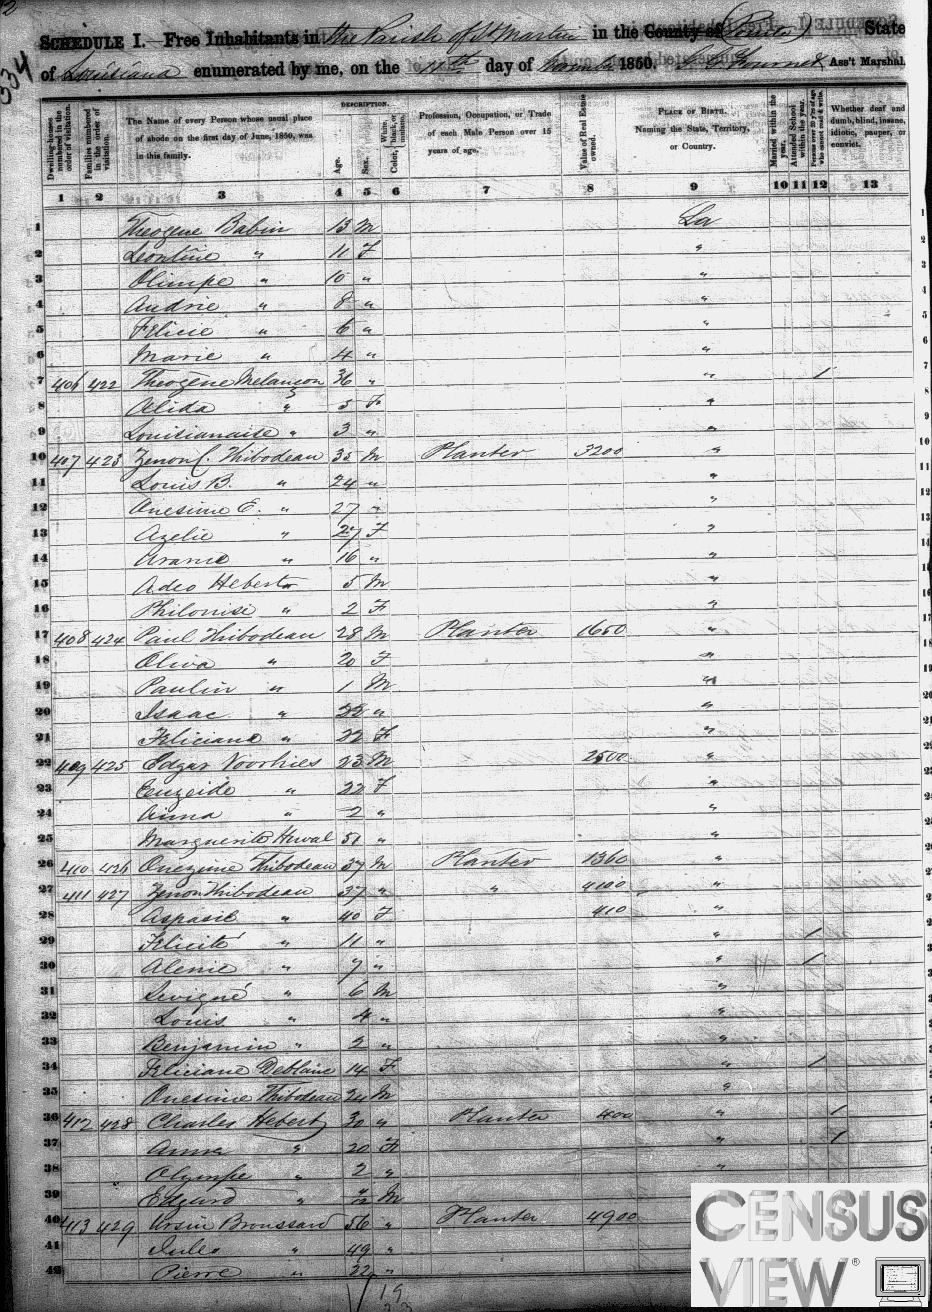 334
SCHEDULE I. Free Inhabitants in the Parish of St Martin in the County of (Parish) State
of Louisiana enumerated by me, on the 11th day of 1850. Ass't Marshal.
Dwelling-houses numbered in the order of visitation.
Families numbered in the order of visitation.
The Name of every Person whose usual place of abode on the first day of June, 1850, was in this family.
DESCRIPTION.
Age.
Sex.
Color, White, black, or mulatto.
Profession, Occupation, or Trade of each Male Person over 15 years of age.
Value of Real Estate owned.
PLACE OF BIRTH. Naming the State, Territory, or Country.
Married within the year.
Attended School within the year.
Persons over 20 y'rs of age who cannot read & write.
Whether deaf and dumb, blind, insane, idiotic, pauper, or convict.
1 2 3 4 5 6 7 8 9 10 11 12 13
1 Theogene Babin 13 M La
2 Leontine " 11 F "
3 Olimpe " 10 " "
4 Audrie " 8 " "
5 Felicie " 6 " "
6 Marie " 4 " "
7 406 422 Theogène Melancon 36 " " /
8 Alida " 5 F "
9 Louisianaise " 3 " "
10 407 423 Zenon C. Thibodeau 35 M Planter 3200 "
11 Louis B. " 24 " "
12 Onesime E. " 27 " "
13 Azelie " 27 F "
14 " 16 " "
15 Adeo Hebert 5 M "
16 Philonise " 2 F "
17 408 424 Paul Thibodeau 28 M Planter 1650 "
18 Oliva " 20 F "
19 Paulin " 1 M "
20 Isaac " 22 " "
21 Feliciana " 22 F "
22 409 425 Edgar Voorhies 23 M 2500 "
23 " 22 F "
24 Anna " 2 " "
25 Marguerite 51 " "
26 410 426 Onezime Thibodeau 37 M Planter 1360 "
27 411 427 Zenon Thibodeau 37 " " 4100 "
28 Aspasie " 40 F 410 "
29 Felicité " 11 " " /
30 Alenie " 7 " " /
31 Sevigné " 6 M "
32 Louis " 4 " "
33 Benjamin " 2 " "
34 Feliciane Deblanc 14 F " /
35 Onesime Thibodeau 24 M "
36 412 428 Charles Hebert 30 " Planter 400 " /
37 Anna " 20 F " /
38 Olympe " 2 " "
39 Edward " M
40 413 429 Ursin Broussard 56 " Planter 4900
41 Jules " 49 "
42 Pierre " 22 "
19
23
CENSUS
VIEW®